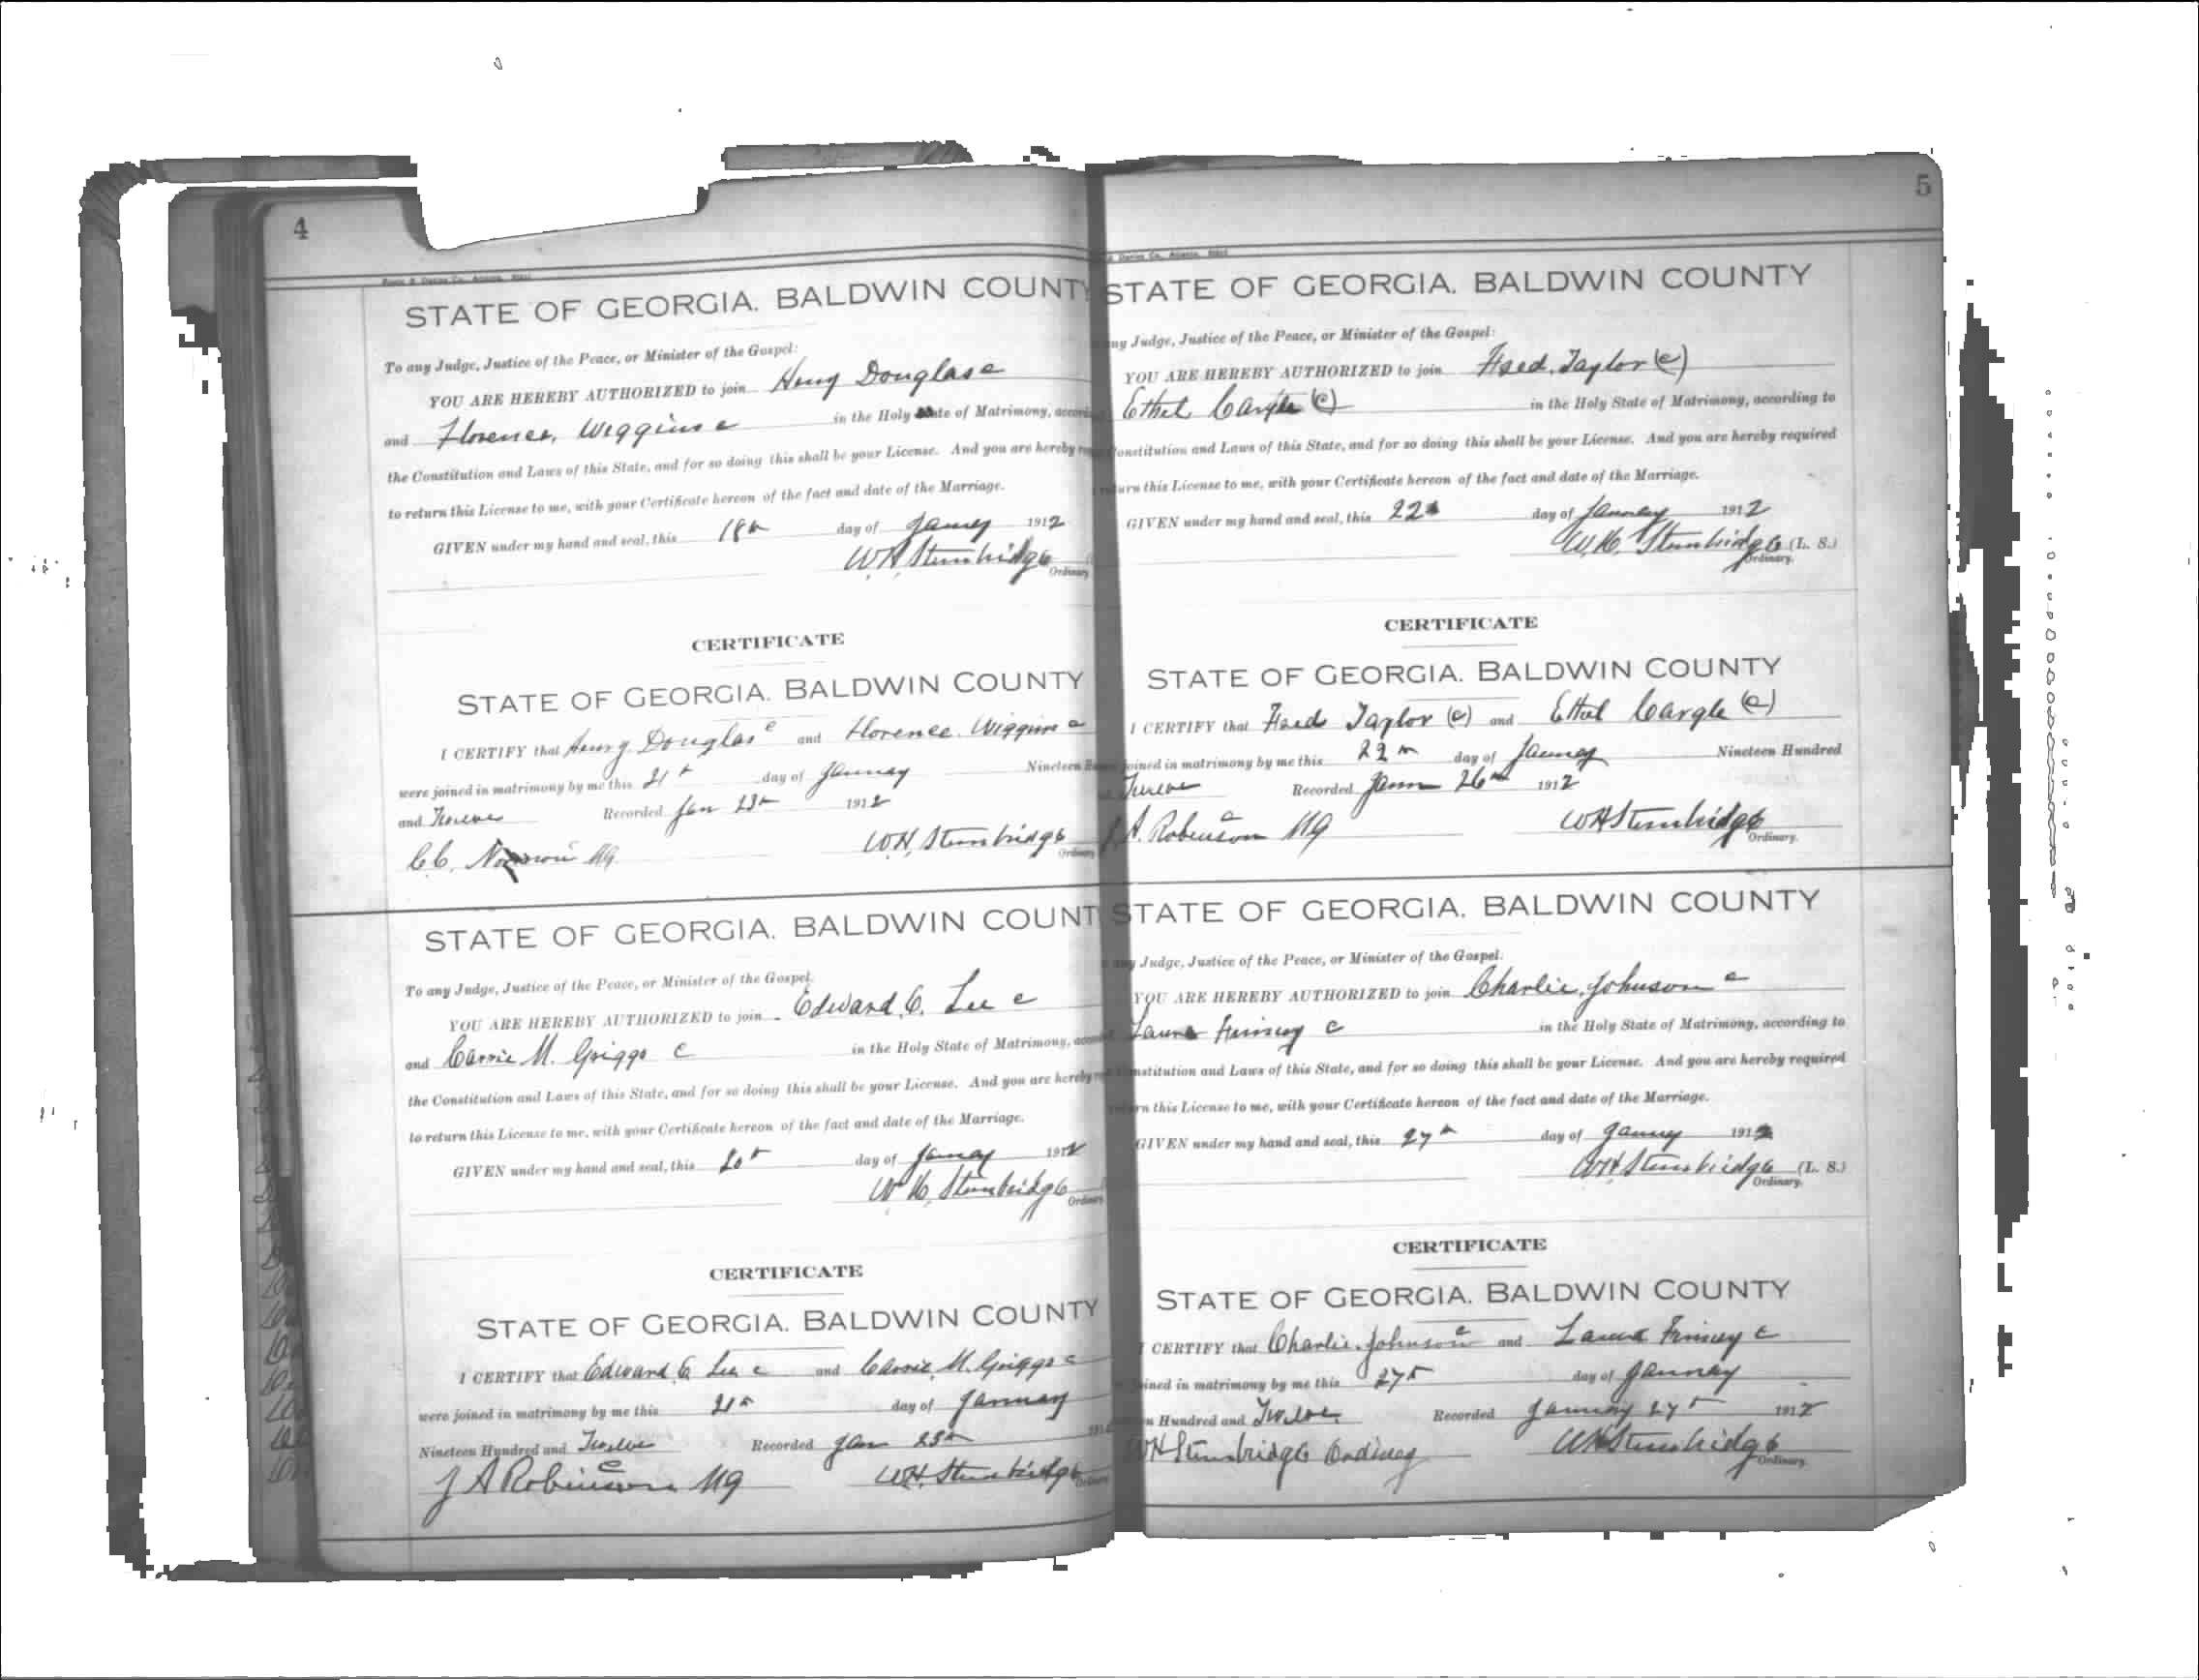 4
STATE OF GEORGIA. BALDWIN COUNTY
To any Judge, Justice of the Peace, or Minister of the Gospel:
YOU ARE HEREBY AUTHORIZED to join Henry Douglas c
and Florence Wiggins c in the Holy State of Matrimony,
the Constitution and Laws of this State, and for so doing this shall be your License. And you are hereby
to return this License to me, with your Certificate hereon of the fact and date of the Marriage.
GIVEN under my hand and seal, this 18th day of January 1912
W H Stembridge
Ordinary
CERTIFICATE
STATE OF GEORGIA. BALDWIN COUNTY
I CERTIFY that Henry Douglas c and Florence Wiggins c
were joined in matrimony by me this 21st day of January Nineteen
and Twelve Recorded Jan 23rd 1912
C.C. M.G. W.H. Stembridge
Ordinary
STATE OF GEORGIA. BALDWIN COUNT
To any Judge, Justice of the Peace, or Minister of the Gospel.
YOU ARE HEREBY AUTHORIZED to join Edward C. Lee c
and Carrie M. Griggs c in the Holy State of Matrimony,
the Constitution and Laws of this State, and for so doing this shall be your License. And you are hereby
to return this License to me, with your Certificate hereon of the fact and date of the Marriage.
GIVEN under my hand and seal, this 20th day of January 1912
W H. Stembridge
Ordinary
CERTIFICATE
STATE OF GEORGIA. BALDWIN COUNTY
I CERTIFY that Edward C. Lee c and Carrie M. Griggs c
were joined in matrimony by me this 21st day of January
Nineteen Hundred and Twelve Recorded Jan 23rd 191
J A Robinson c MG W.H. Stembridge
Ordinary
5
STATE OF GEORGIA. BALDWIN COUNTY
ny Judge, Justice of the Peace, or Minister of the Gospel:
YOU ARE HEREBY AUTHORIZED to join Taylor (c)
Ethel Cargle (c) in the Holy State of Matrimony, according to
onstitution and Laws of this State, and for so doing this shall be your License. And you are hereby required
turn this License to me, with your Certificate hereon of the fact and date of the Marriage.
GIVEN under my hand and seal, this 22 day of January 1912
W.H. Stembridge (L. S.)
Ordinary.
CERTIFICATE
STATE OF GEORGIA. BALDWIN COUNTY
I CERTIFY that Taylor (c) and Ethel Cargle (c)
joined in matrimony by me this 22 day of January Nineteen Hundred
Twelve Recorded 26th 1912
J.A. Robinson c MG W H Stembridge
Ordinary.
STATE OF GEORGIA. BALDWIN COUNTY
ny Judge, Justice of the Peace, or Minister of the Gospel.
YOU ARE HEREBY AUTHORIZED to join Charlie Johnson c
Laura Finney c in the Holy State of Matrimony, according to
nstitution and Laws of this State, and for so doing this shall be your License. And you are hereby required
rn this License to me, with your Certificate hereon of the fact and date of the Marriage.
GIVEN under my hand and seal, this 27th day of January 1912
W H Stembridge (L. S.)
Ordinary.
CERTIFICATE
STATE OF GEORGIA. BALDWIN COUNTY
I CERTIFY that Charlie Johnson c and Laura Finney c
joined in matrimony by me this 27th day of January
n Hundred and Twelve Recorded January 27th 1912
W H Stembridge Ordinary W H Stembridge
Ordinary